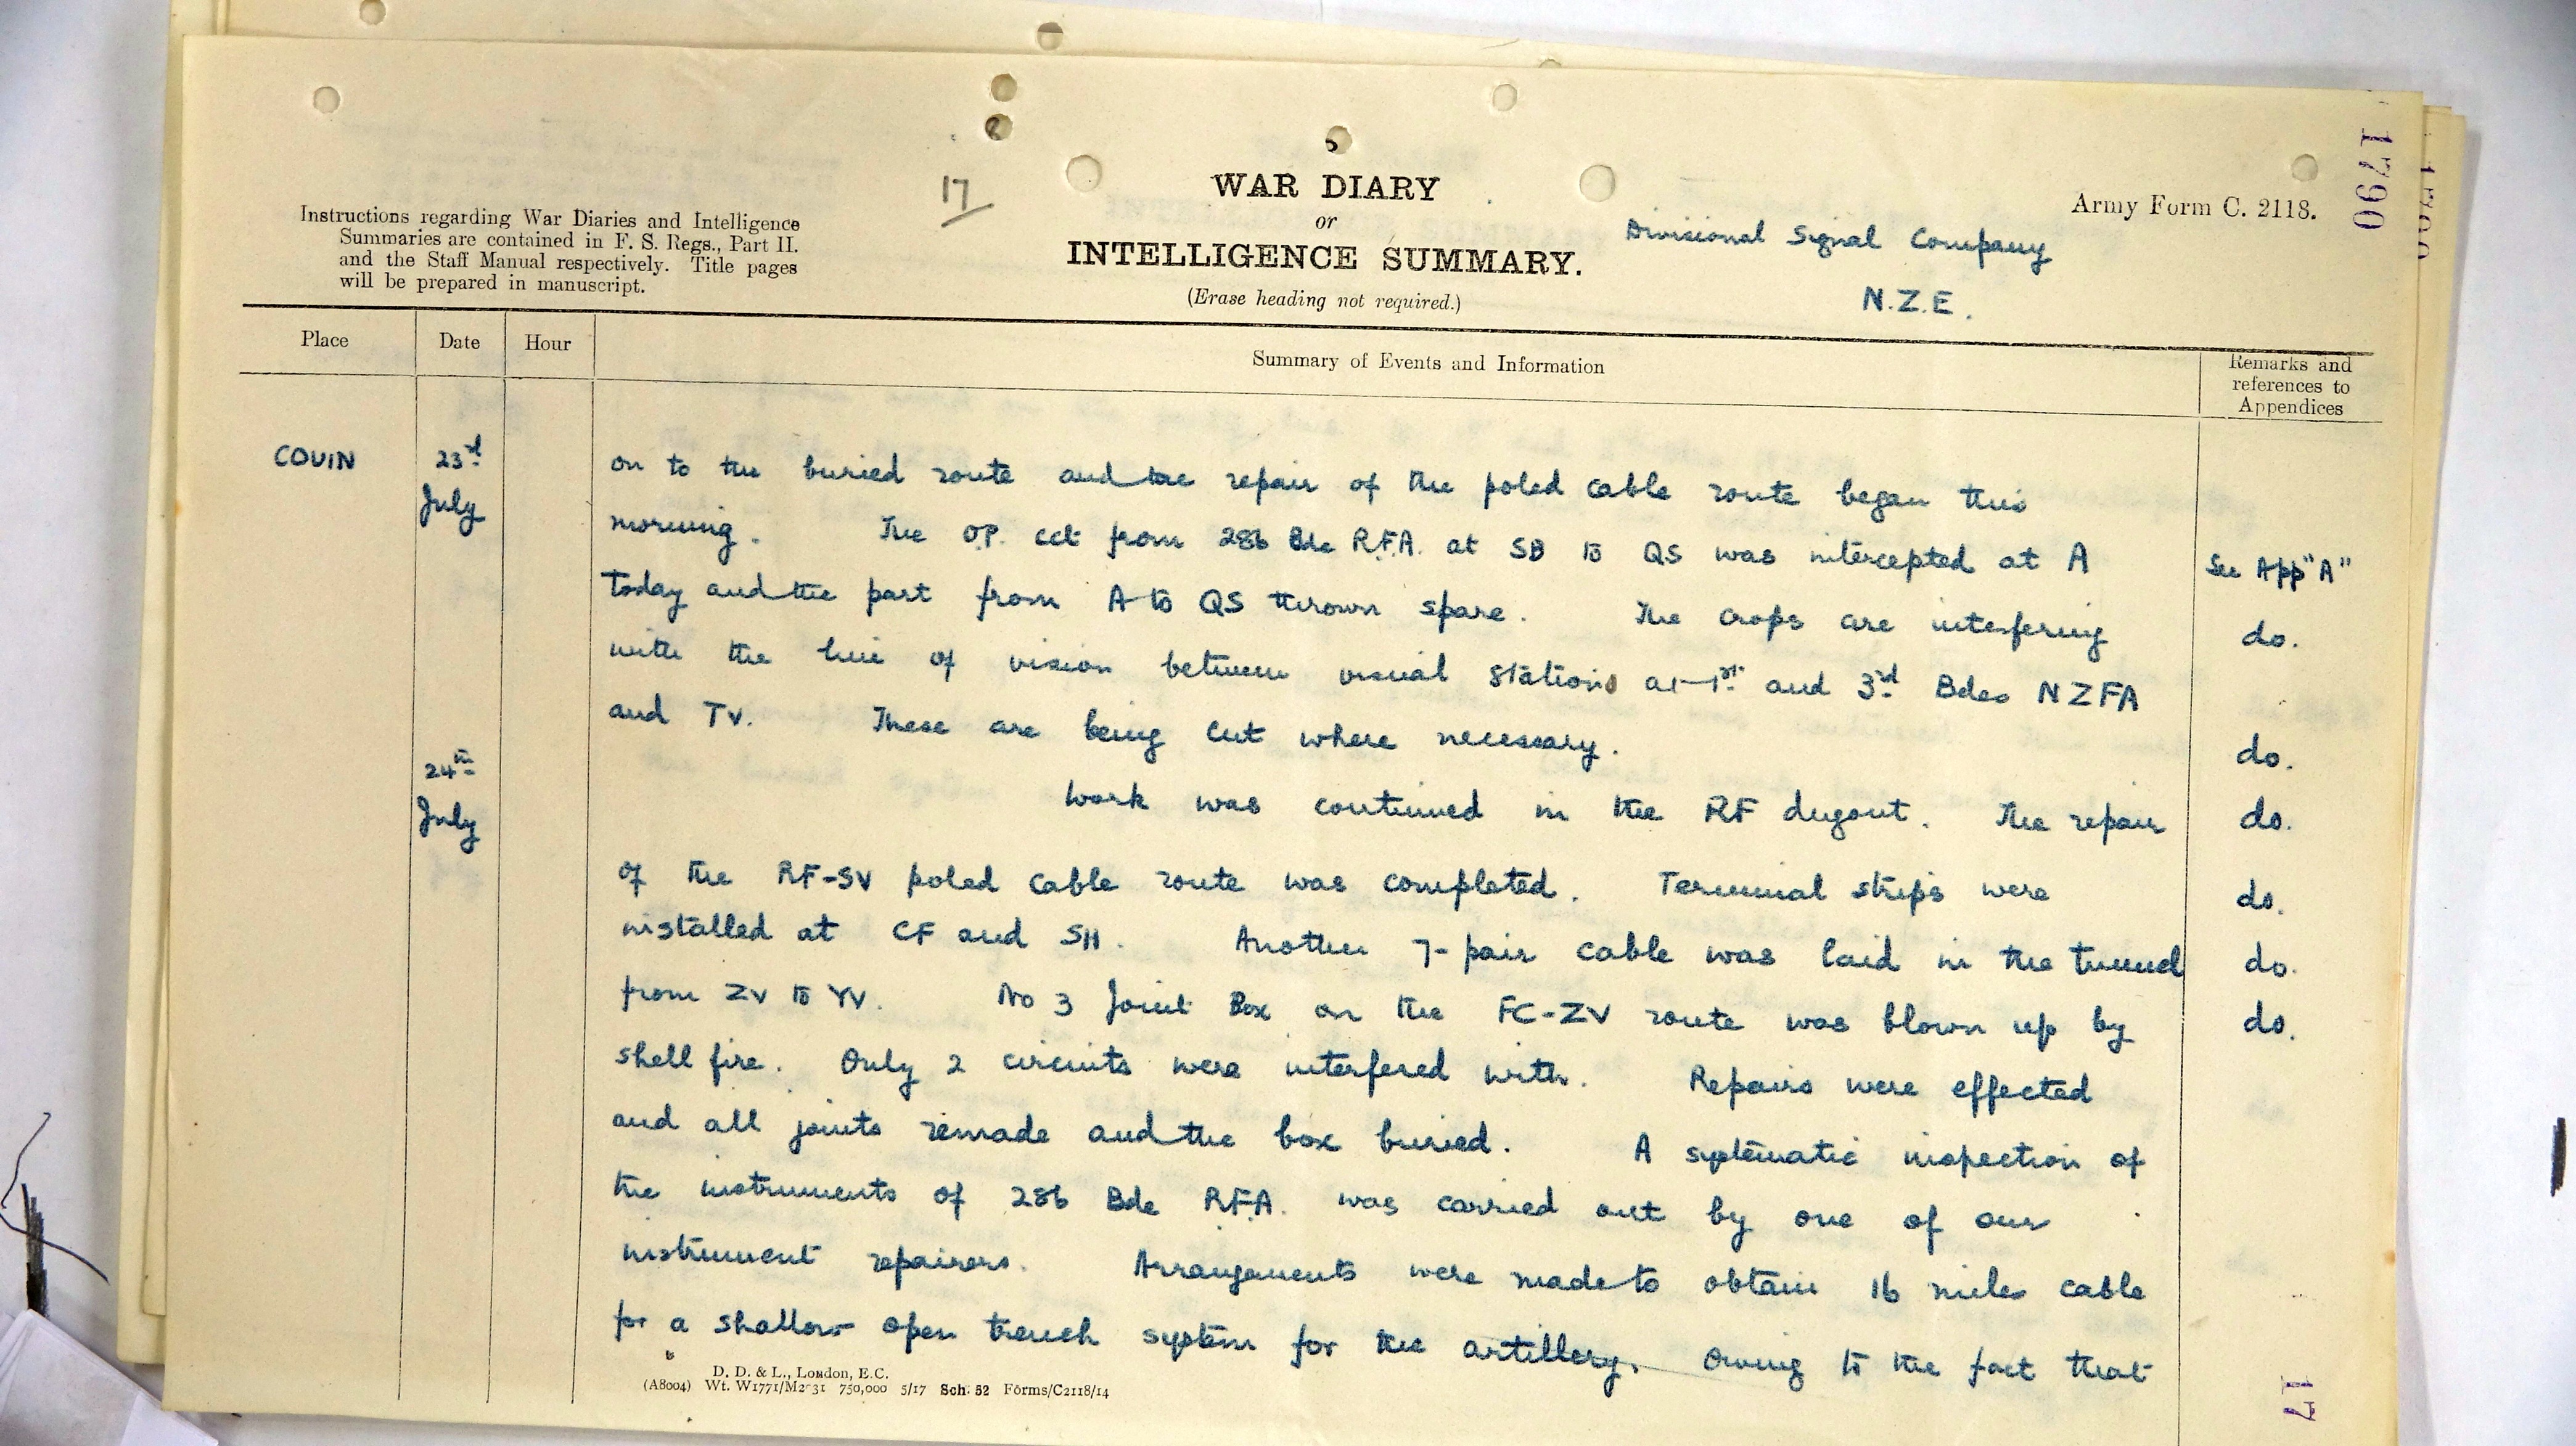 17
WAR DIARY
or
INTELLIGENCE SUMMARY.
(Erase heading not required.)
Instructions regarding War Diaries and Intelligence
Summaries are contained in F. S. Regs., Part II.
and the Staff Manual respectively. Title pages
will be prepared in manuscript.
Divisional Signal Company
N.Z.E.
Army Form C. 2118.
1790
Place
Date
Hour
Summary of Events and Information
Remarks and
references to
Appendices
COUIN
23rd
July
on to the buried route and the repair of the poled cable route began this
morning. The O.P. cct from 286 Bde R.F.A. at SB to QS was intercepted at A
See App "A"
today and the part from A to QS thrown spare. The crops are interfering
do.
with the line of vision between visual stations at 1st and 3rd Bdes NZFA
and TV. These are being cut where necessary.
do.
24th
July
Work was continued in the RF dugout. The repair
do.
of the RF-SV poled cable route was completed. Terminal strips were
do.
installed at CF and SH. Another 7-pair cable was laid in the tunnel
do.
from ZV to YV. No 3 Joint Box on the FC-ZV route was blown up by
do.
shell fire. Only 2 circuits were interfered with. Repairs were effected
and all joints remade and the box buried. A systematic inspection of
the instruments of 286 Bde R.F.A. was carried out by one of our
instrument repairers. Arrangements were made to obtain 16 miles cable
for a shallow open trench system for the artillery. Owing to the fact that
D. D. & L., London, E.C.
(A8004) Wt. W1771/M2031 750,000 5/17 Sch: 52 Forms/C2118/14
17